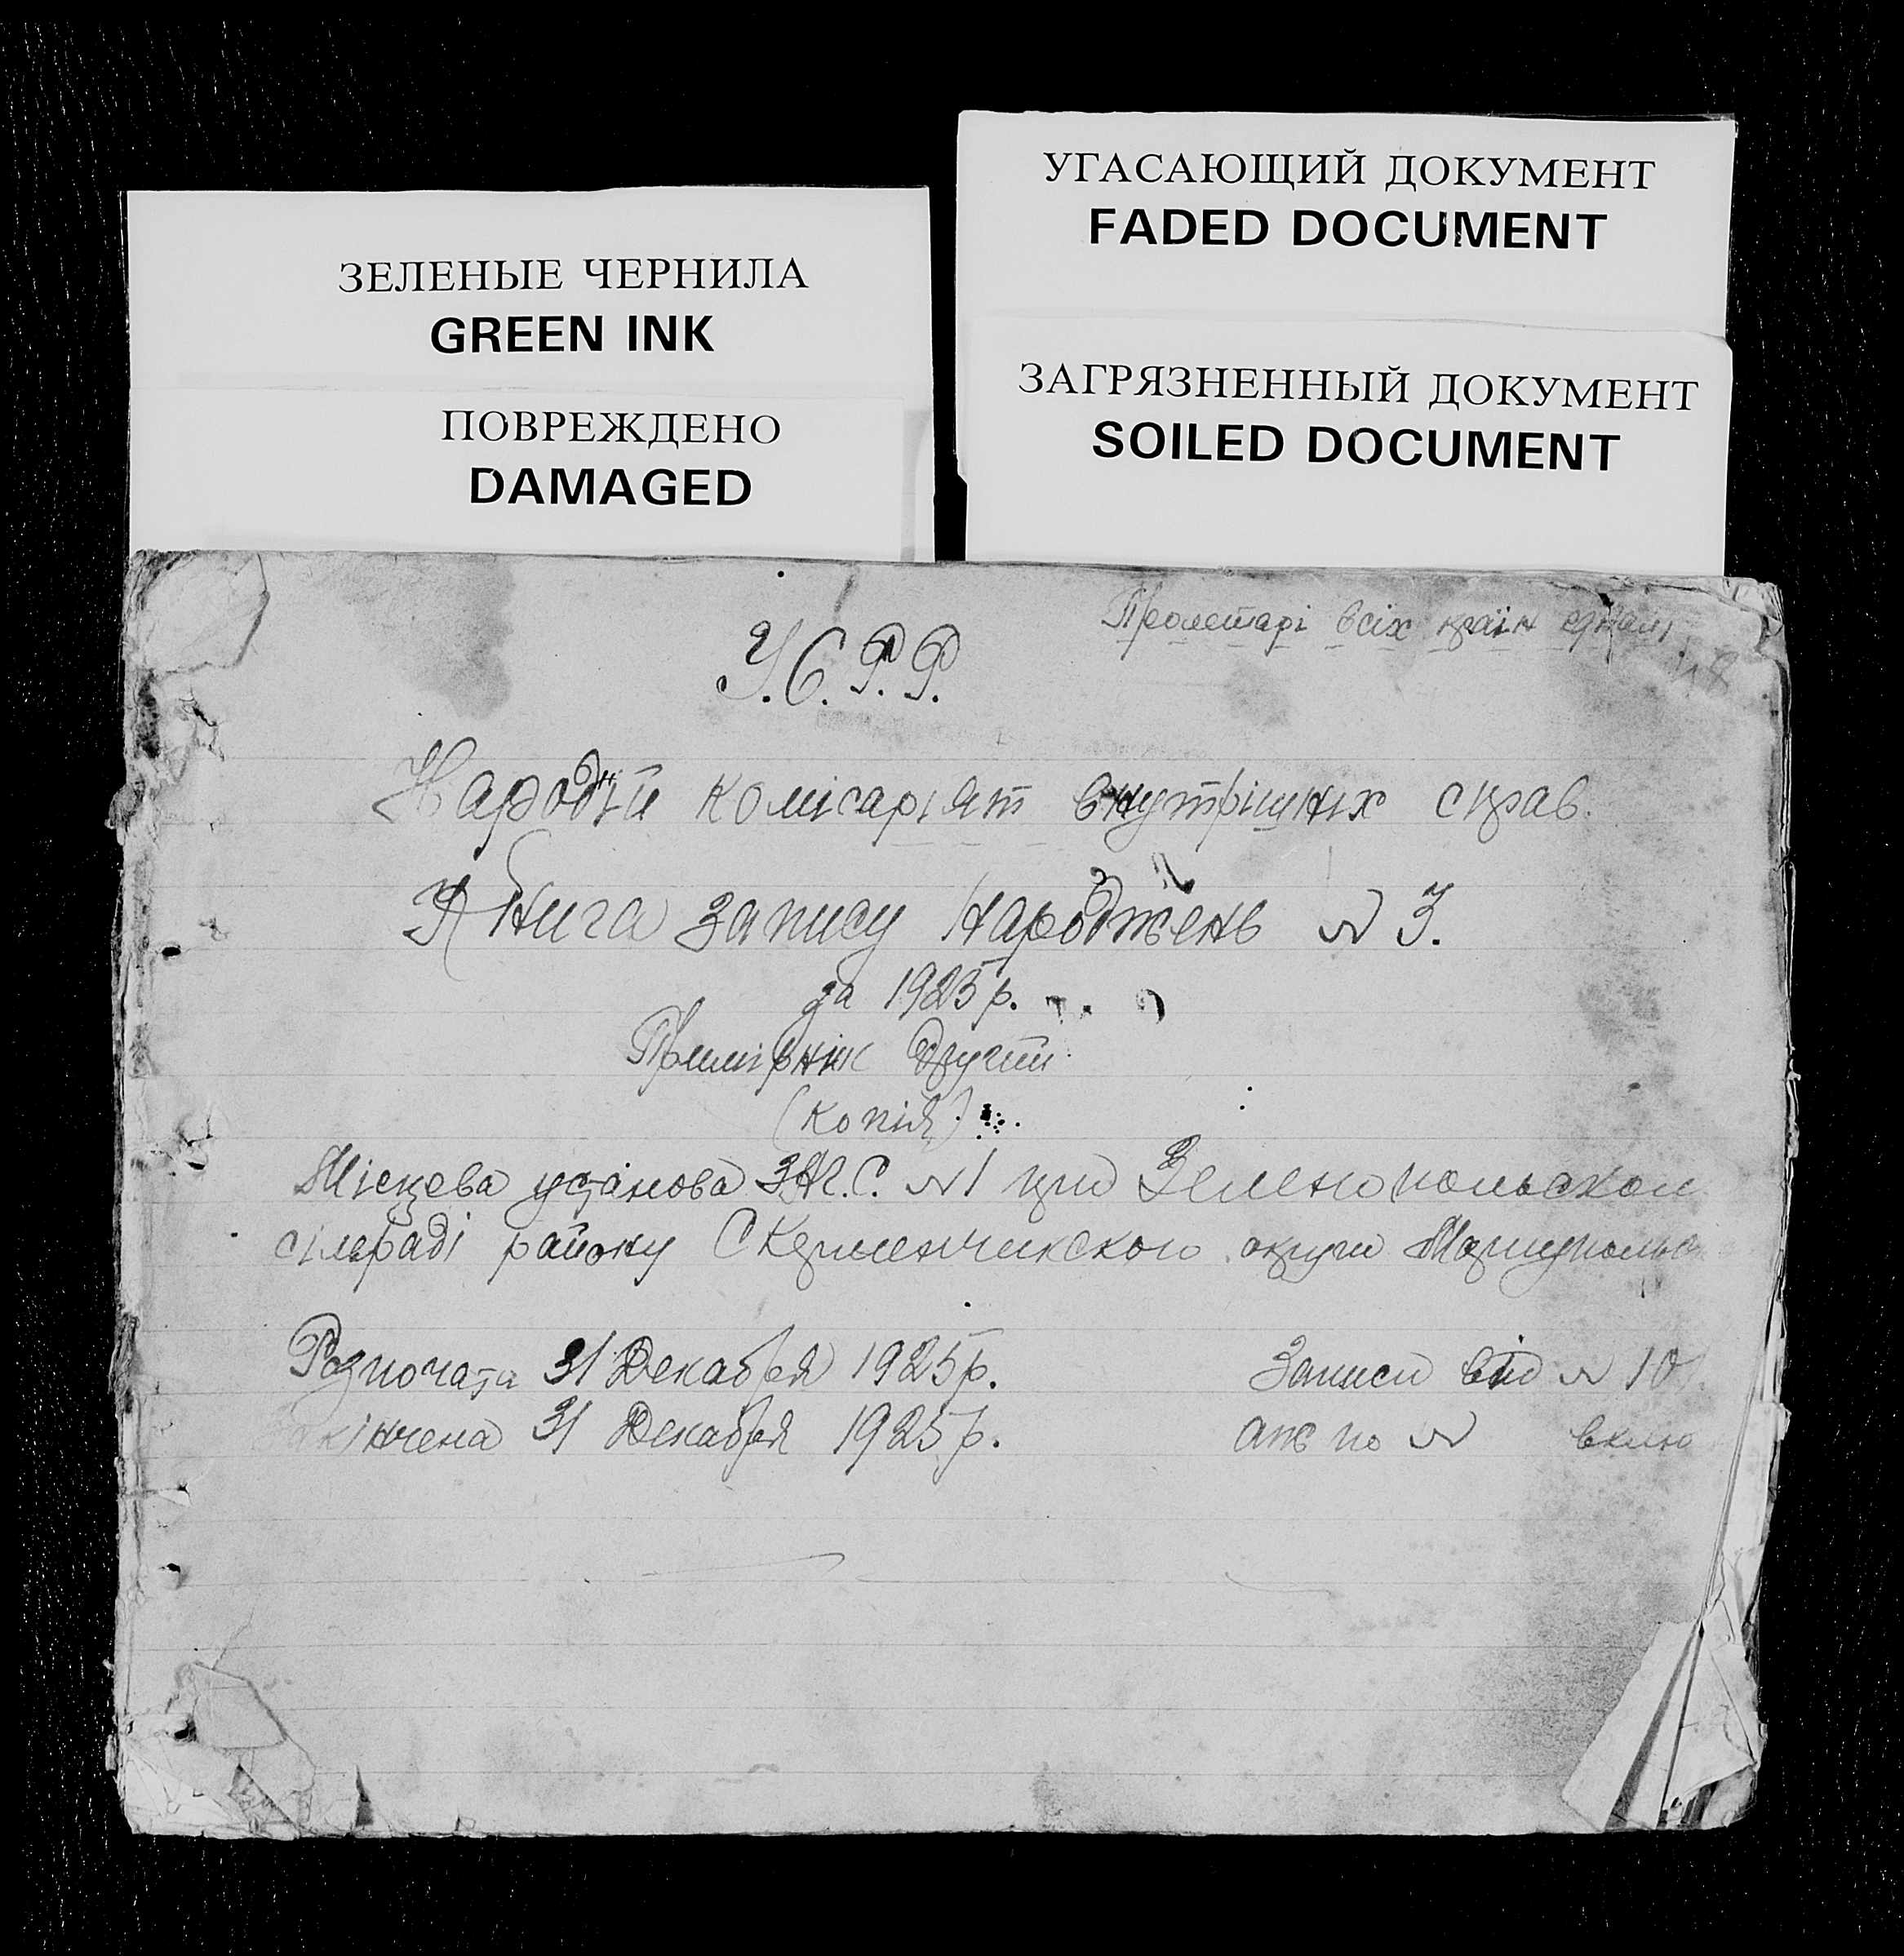 УГАСАЮЩИЙ ДОКУМЕНТ
FADED DOCUMENT
ЗЕЛЕНЫЕ ЧЕРНИЛА
GREEN INK
ЗАГРЯЗНЕННЫЙ ДОКУМЕНТ
SOILED DOCUMENT
ПОВРЕЖДЕНО
DAMAGED
Пролетарі всіх країн
У.С.Р.Р.
Народній комісаріят внутрішніх справ.
Книга запису народжень № 3.
за 1925 р.
Примірник другий
(копія)
Місцева установа З.А.Г.С. № 1 при Зеленопольской
сільраді району Скерменчикского округи Мариуполь
Розпочата 31 Декабря 1925 р.
Записи від № 10
кінчена 31 Декабря 1925 р.
аж по № вклю